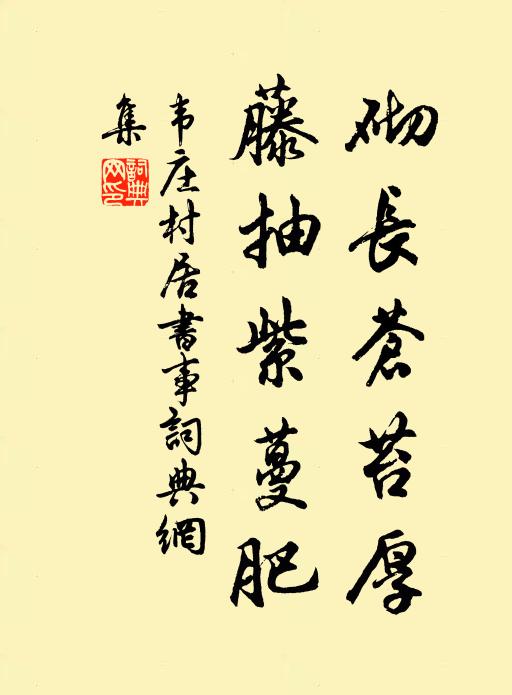 砌長蒼苔厚
藤抽紫蔓肥
韦庄村居書事詞典網
集
詞典網印